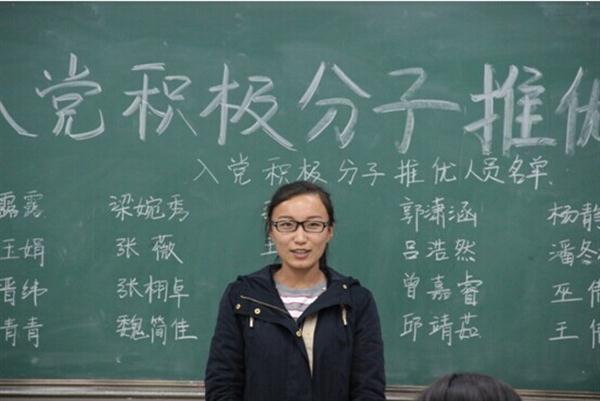 入党积极分子推优
入党积极分子推优人员名单
露露 梁婉秀 郭潇涵 杨静
玉娟 张薇 吕浩然 潘冬
晋纬 张栩卓 曾嘉睿 巫倩
青青 魏简佳 邱靖茹 王倩